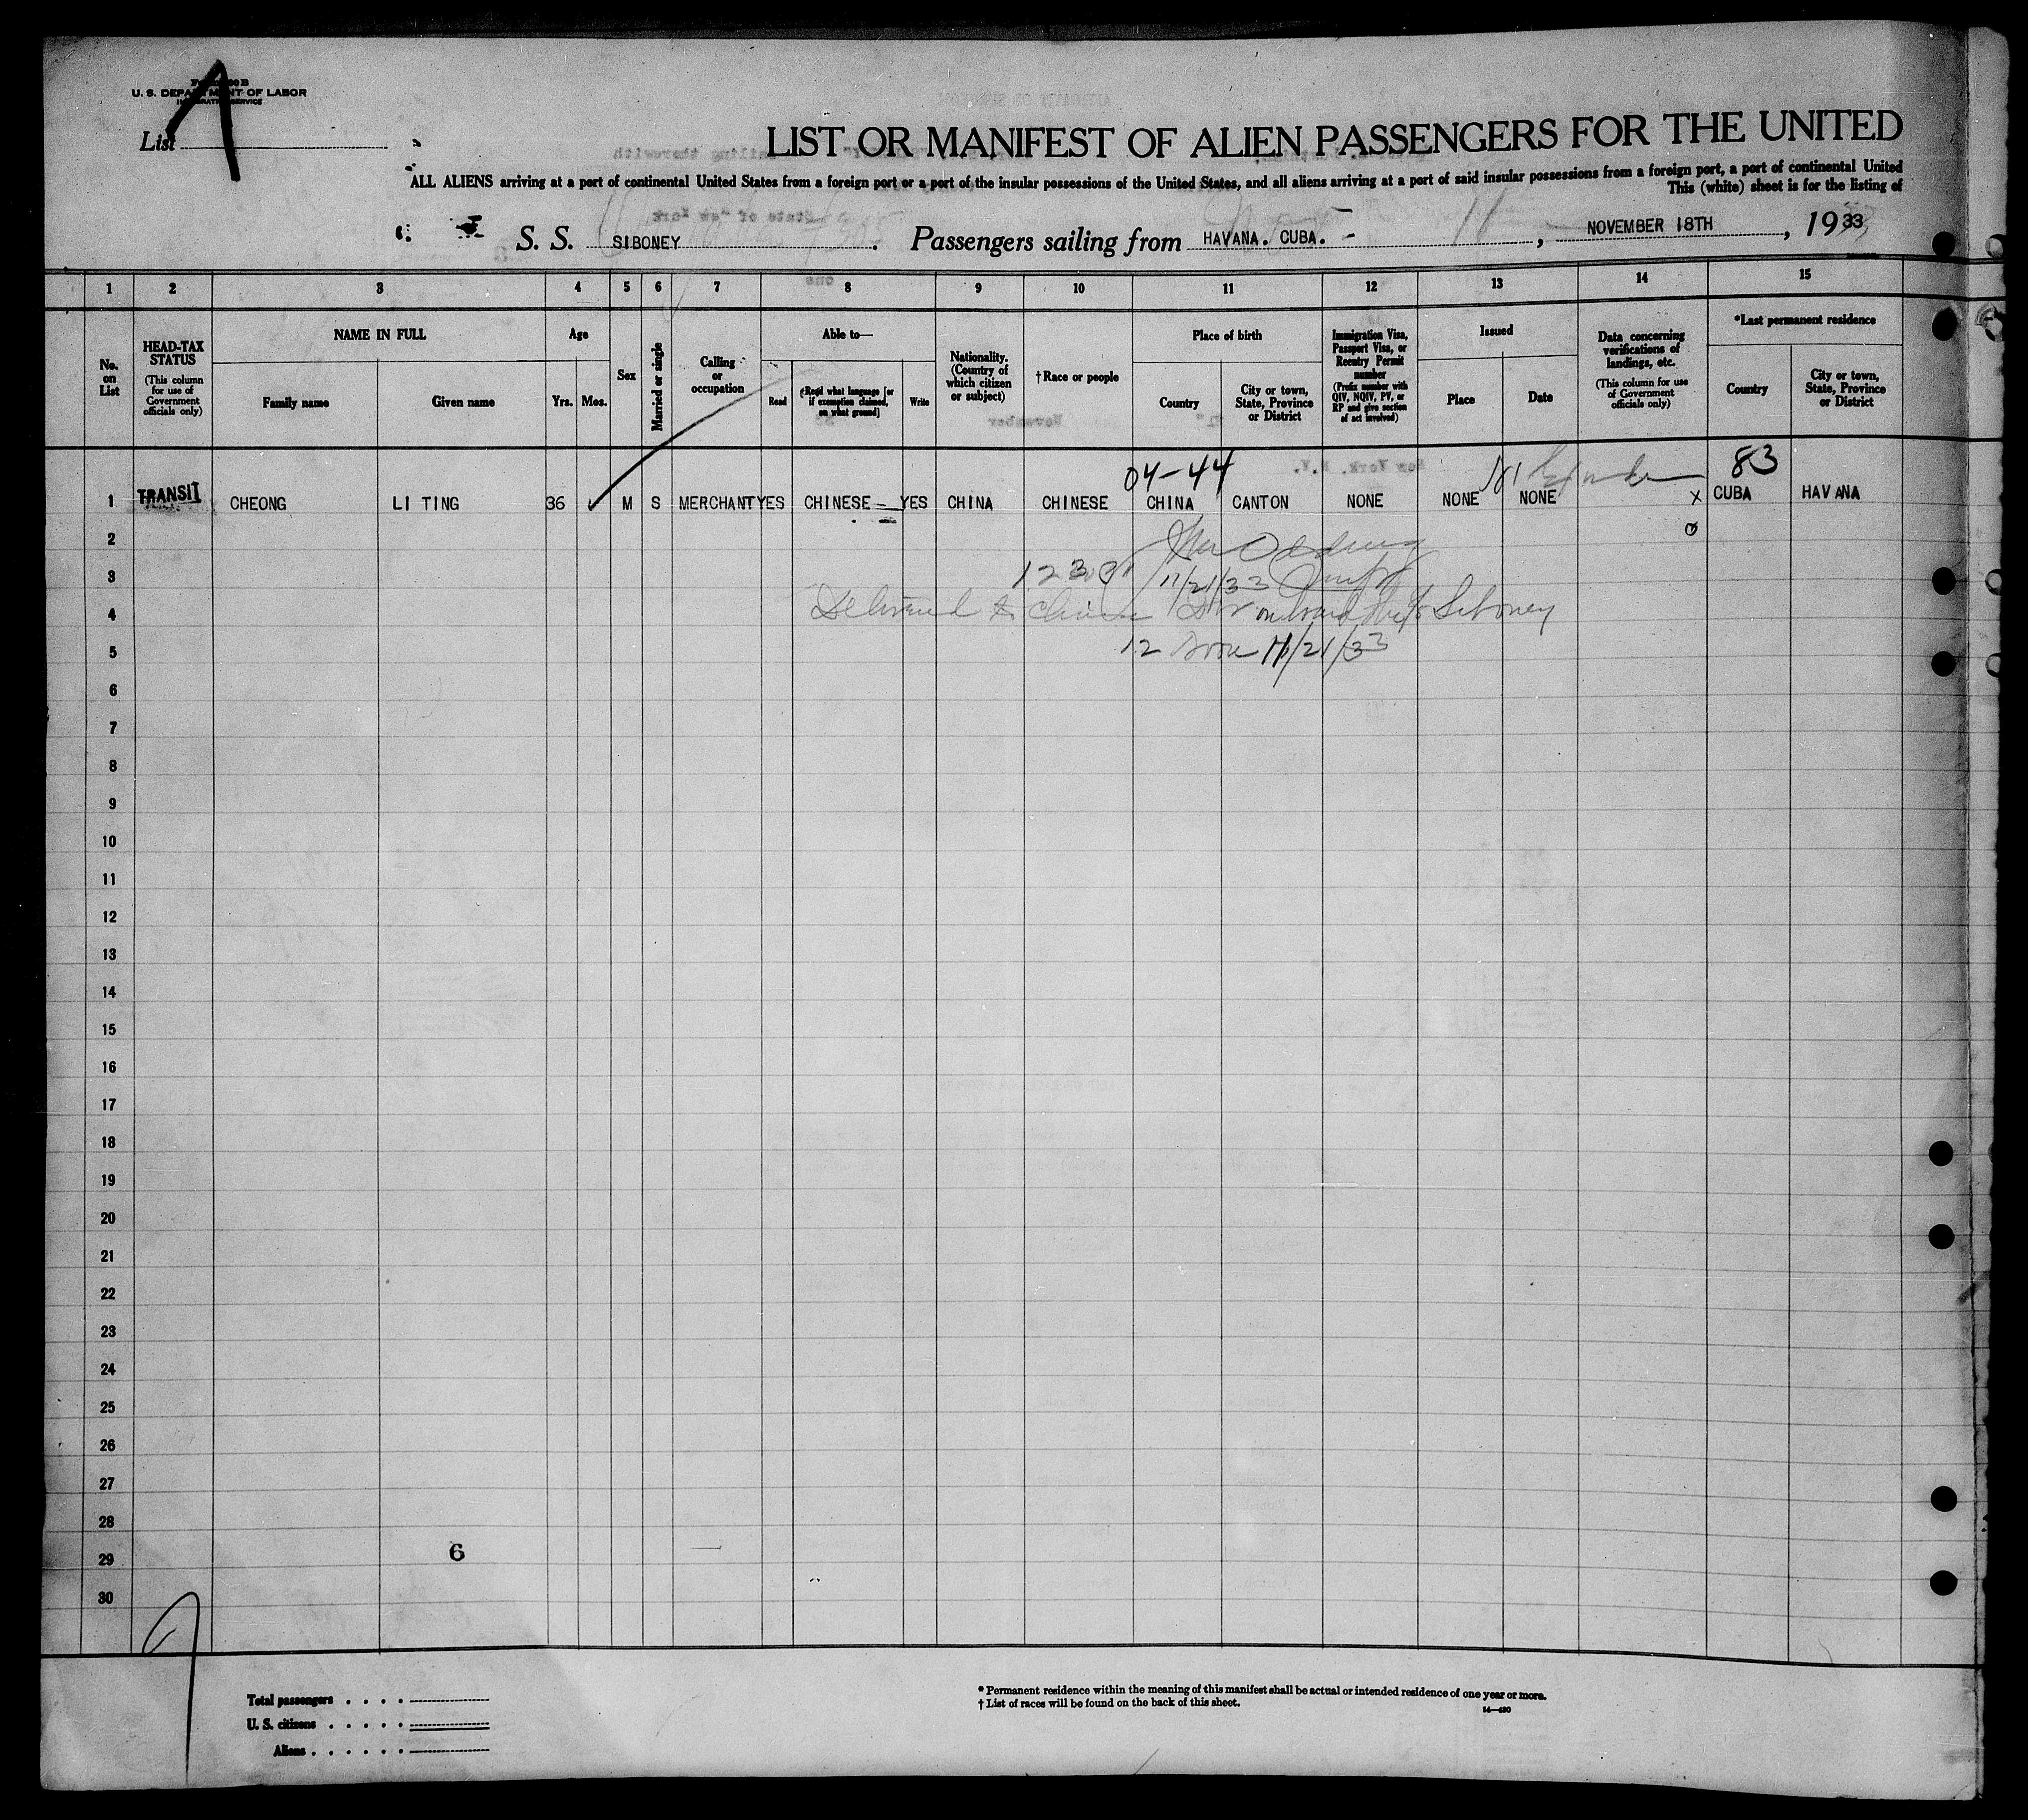 U. S. DEPARTMENT OF LABOR
IMMIGRATION SERVICE
List A
LIST OR MANIFEST OF ALIEN PASSENGERS FOR THE UNITED
ALL ALIENS arriving at a port of continental United States from a foreign port or a port of the insular possessions of the United States, and all aliens arriving at a port of said insular possessions from a foreign port, a port of continental United
This (white) sheet is for the listing of
S. S. SIBONEY. Passengers sailing from HAVANA. CUBA. - , NOVEMBER 18TH , 1933
1 2 3 4 5 6 7 8 9 10 11 12 13 14 15
No. on List
HEAD-TAX STATUS (This column for use of Government officials only)
NAME IN FULL
Family name
Given name
Age
Yrs. Mos.
Sex
Married or single
Calling or occupation
Able to—
Read
Read what language [or if exemption claimed, on what ground]
Write
Nationality. (Country of which citizen or subject)
†Race or people
Place of birth
Country
City or town, State, Province or District
Immigration Visa, Passport Visa, or Reentry Permit number (Prefix number with QIV, NQIV, PV, or RP and give section of act involved)
Issued
Place
Date
Data concerning verifications of landings, etc. (This column for use of Government officials only)
*Last permanent residence
Country
City or town, State, Province or District
04-44 83
1 TRANSIT CHEONG LI TING 36 M S MERCHANT YES CHINESE — YES CHINA CHINESE CHINA CANTON NONE NONE NONE x CUBA HAVANA
2
3 11/21/33
4 Delivered to Chinese on board Siboney
5 12 11/21/33
6
7
8
9
10
11
12
13
14
15
16
17
18
19
20
21
22
23
24
25
26
27
28
29 6
30
Total passengers . . . .
U. S. citizens . . . . .
Aliens . . . . . .
* Permanent residence within the meaning of this manifest shall be actual or intended residence of one year or more.
† List of races will be found on the back of this sheet.
14—430